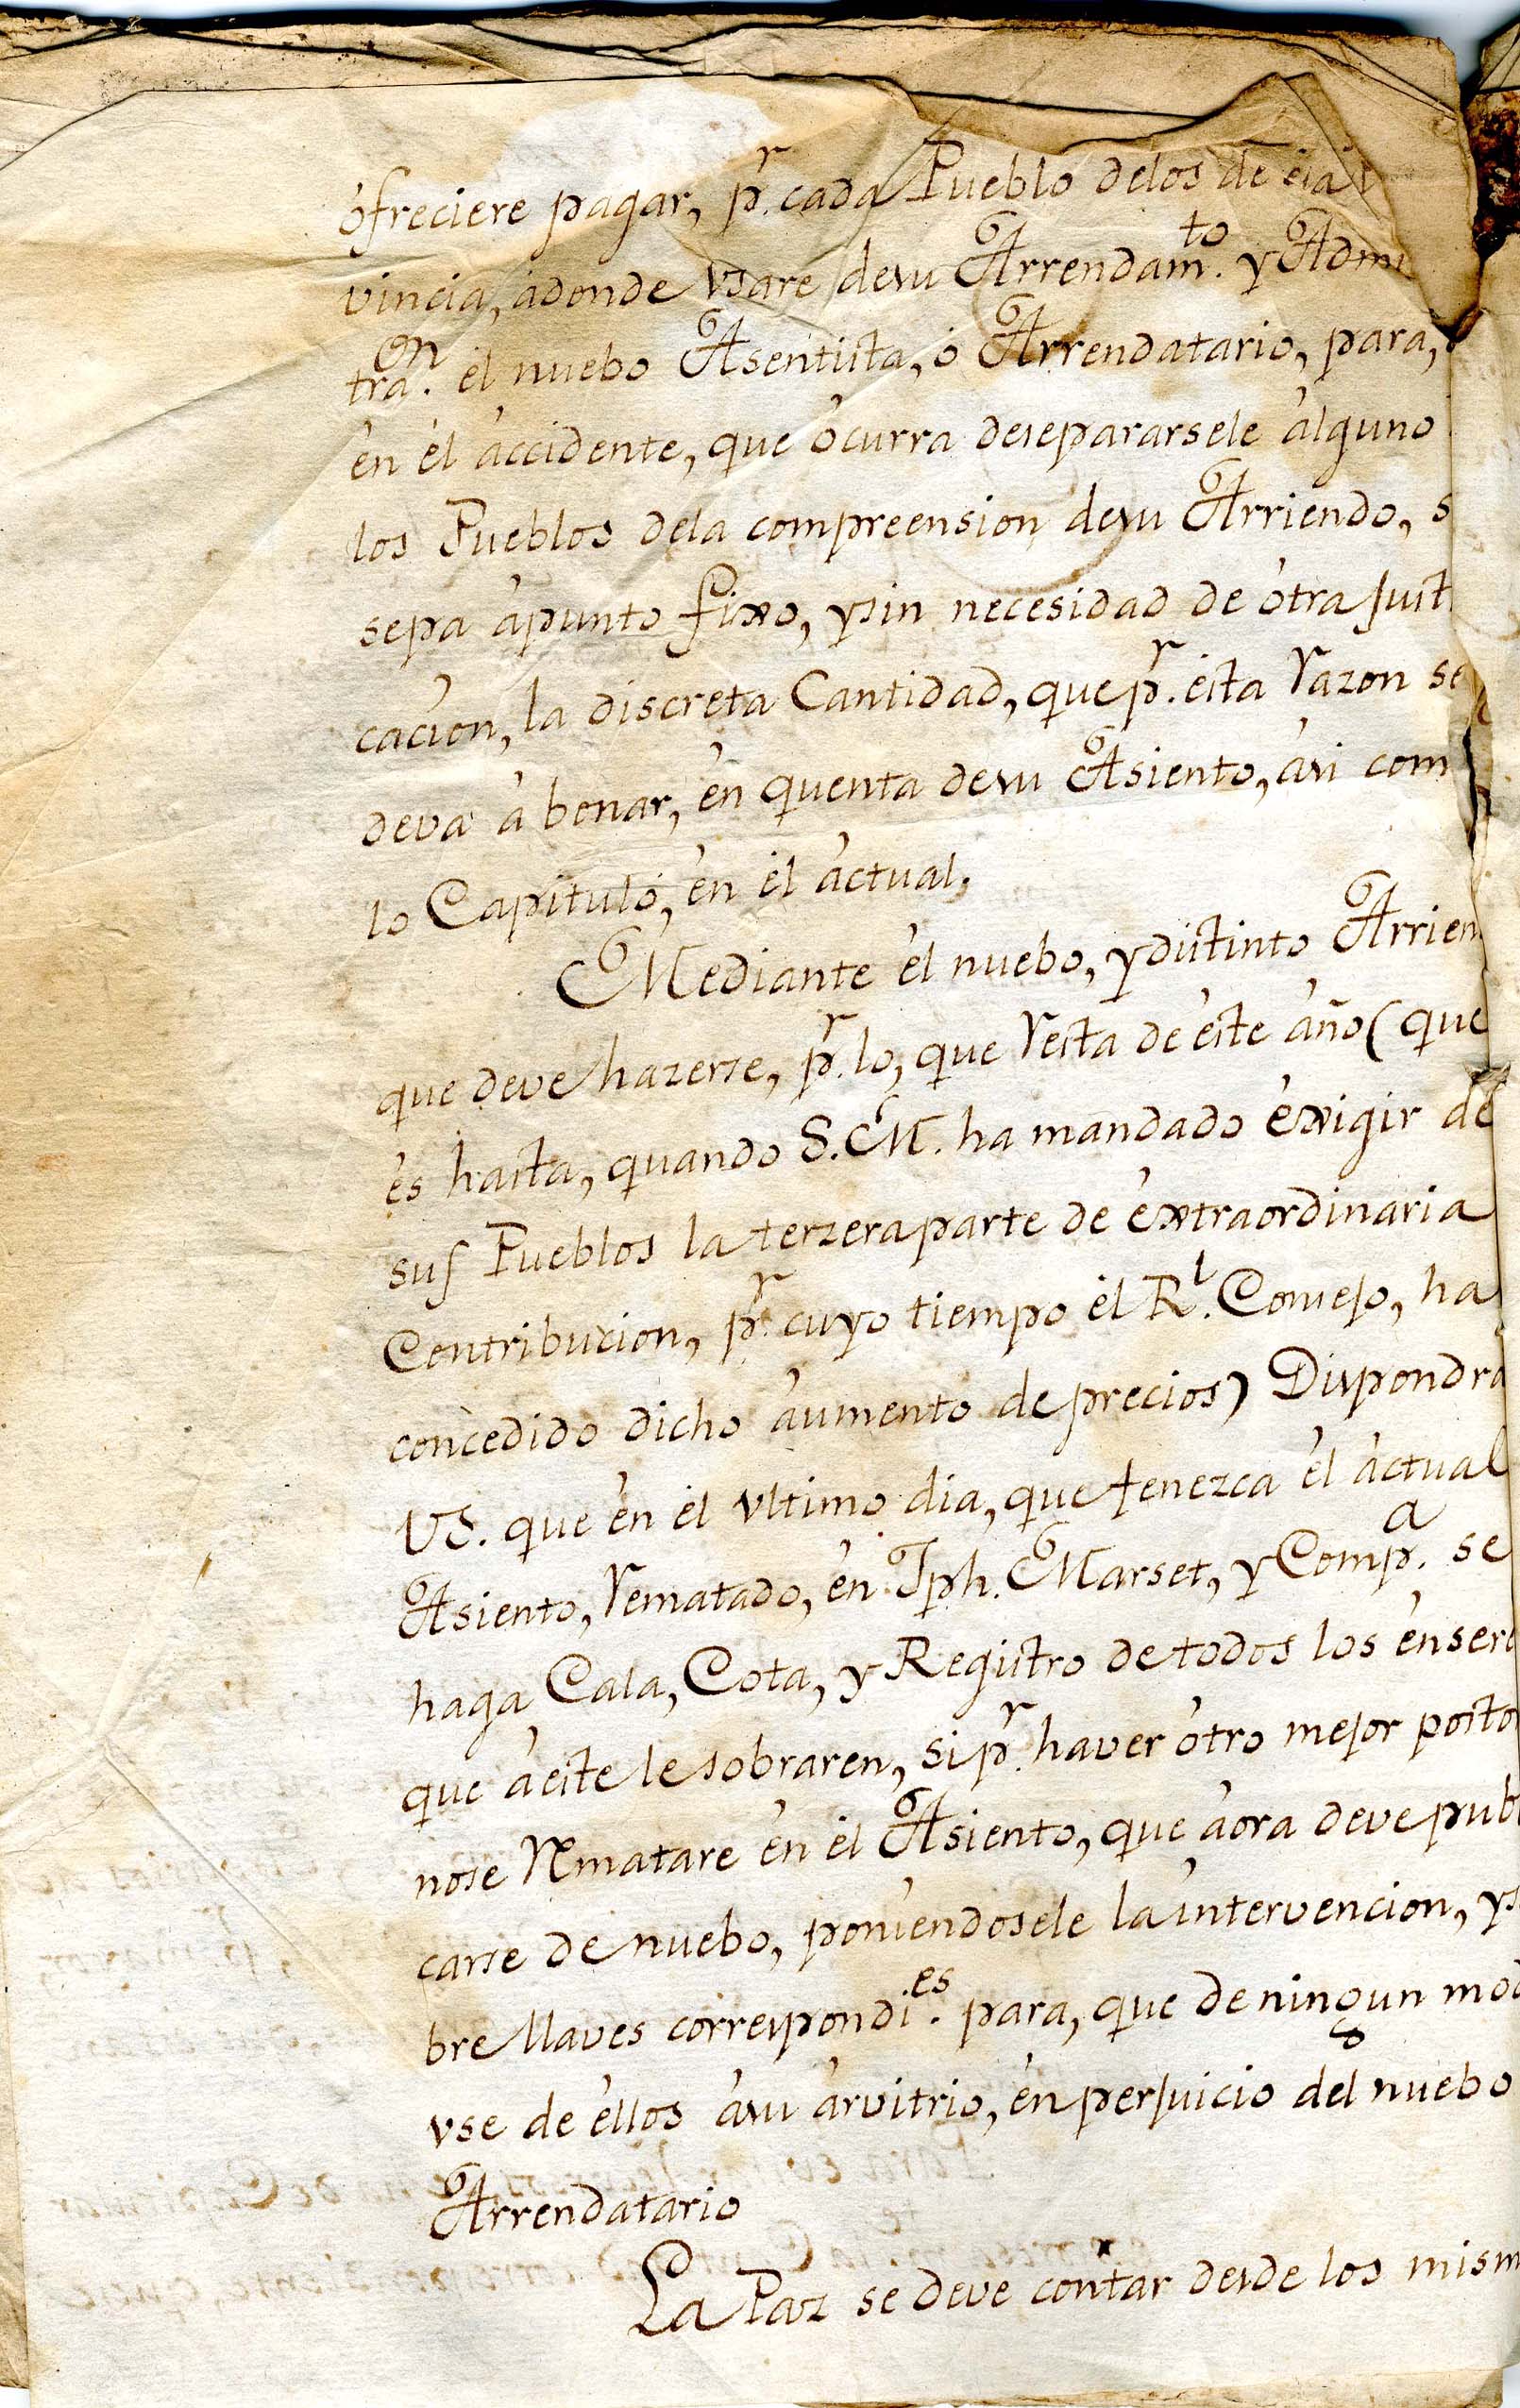 ofreciere pagar, pr. cada Pueblo delos de
vincia, àdonde vsare desu Arrendamto. y Admi
traon. él nuebo Asentista, ó Arrendatario, para,
én él áccidente, que ócurra desepararsele álguno
los Pueblos dela compreension desu Arriendo, s
sepa ápunto fixo, ysin necesidad de ótra Just
cacion, la discreta Cantidad, que pr. ésta Razon se
deva á bonar, én quenta desu Asiento, ási com
lo Capituló, én él áctual,
Mediante él nuebo, y distinto Arrien
que deve hazerse, pr. lo, que Resta de éste áño (que
és hasta, quando S. M. ha mandado éxigir de
sus Pueblos la terzera parte de éxtraordinaria
Contribucion, pr. cuyo tiempo él Rl. Consejo, ha
concedido dicho áumento de precios) Dispondrá
VS. que én él vltimo dia, que fenezca él áctual
Asiento, Rematado, én Jph. Marset, y Compa. se
haga Cala, Cota, y Registro de todos los énsere
que áéste le sobraren, si pr. haver ótro mejor posto
nose Rematare én él Asiento, que áora deve publ
carse de nuebo, poniendosele la íntervencion, y s
bre llaves correspondies. para, que de ningun mod
vse de éllos ásu árvitrio, én perJuicio del nuebo
Arrendatario
La Paz se deve contar desde los mism